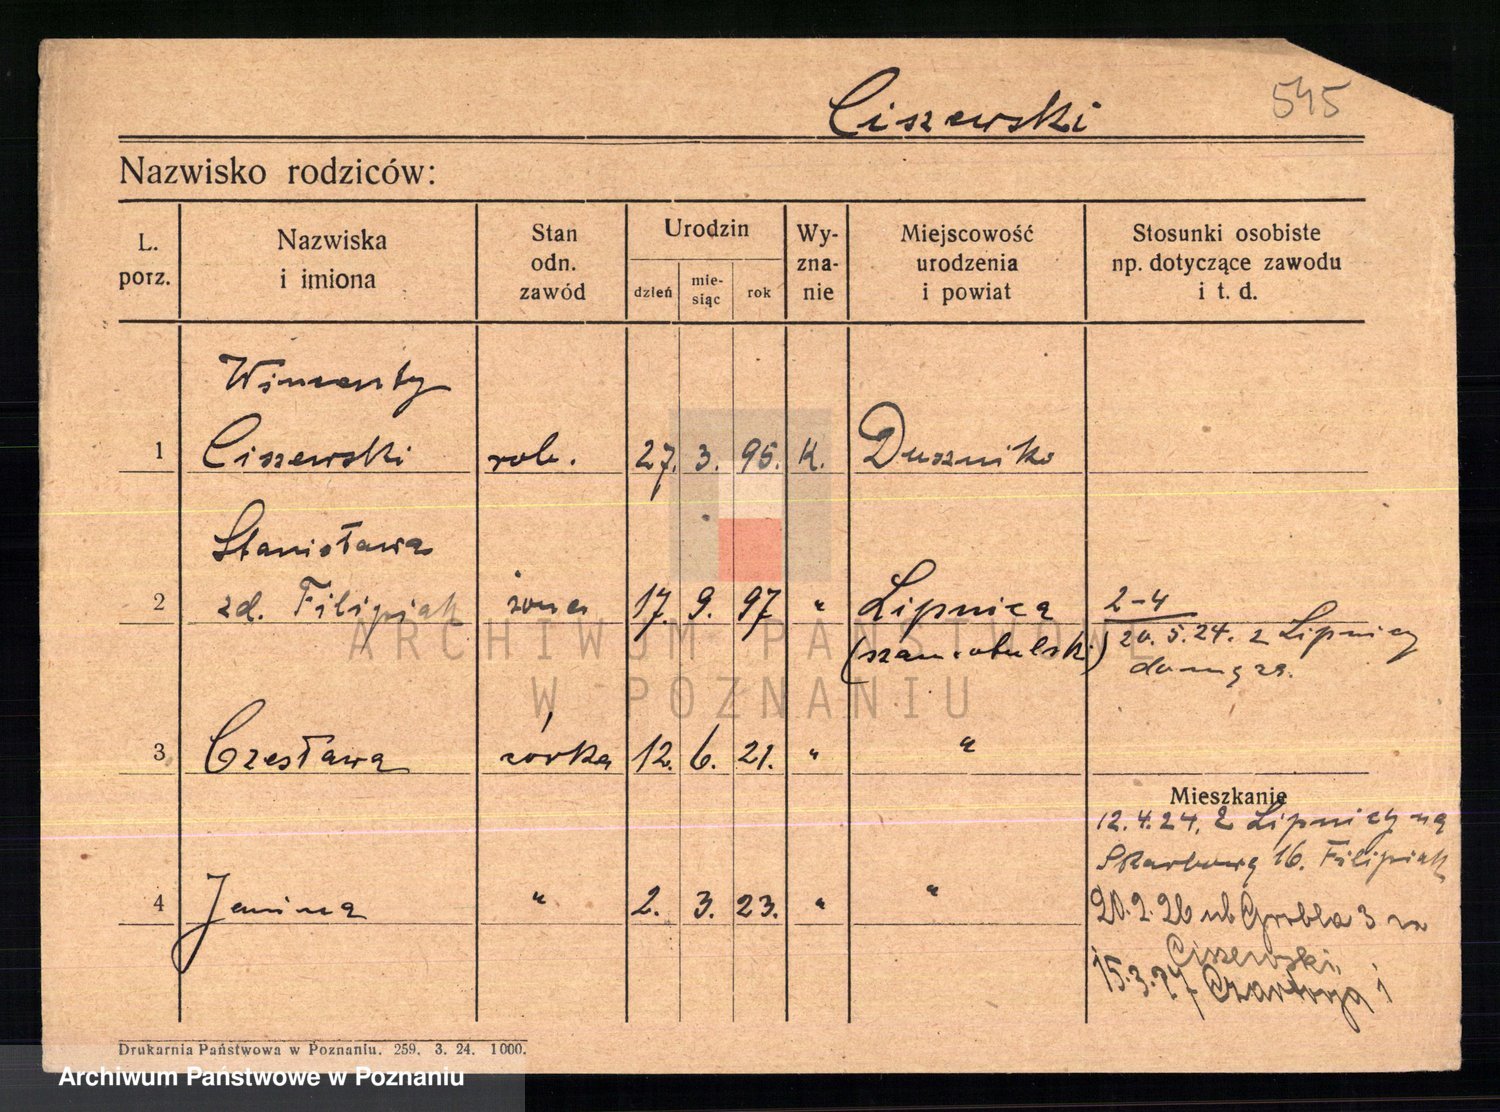 Ciszewski 545
Nazwisko rodziców:
L. porz.
Nazwiska i imiona
Stan odn. zawód
Urodzin
dzień miesiąc rok
Wyznanie
Miejscowość urodzenia i powiat
Stosunki osobiste np. dotyczące zawodu i t. d.
Wincenty
1 Ciszewski rob. 27. 3. 95. K. Duszniko
Stanisława
2 zd. Filipiak żona 17. 9. 97 " Lipnica 2-4
(szamotulski) 20. 5. 24. z Lipnicy
do męża.
3 Czesława córka 12. 6. 21. " "
Mieszkanie
12. 4. 24. z Lipnicy na
Skarbowa 16. Filipiak
4 Janina " 2. 3. 23. " "
20. 2. 26 Grobla 3
Ciszewski,
15. 3. 27
Drukarnia Państwowa w Poznaniu. 259. 3. 24. 1000.
ARCHIWUM PAŃSTWOWE
W POZNANIU
Archiwum Państwowe w Poznaniu